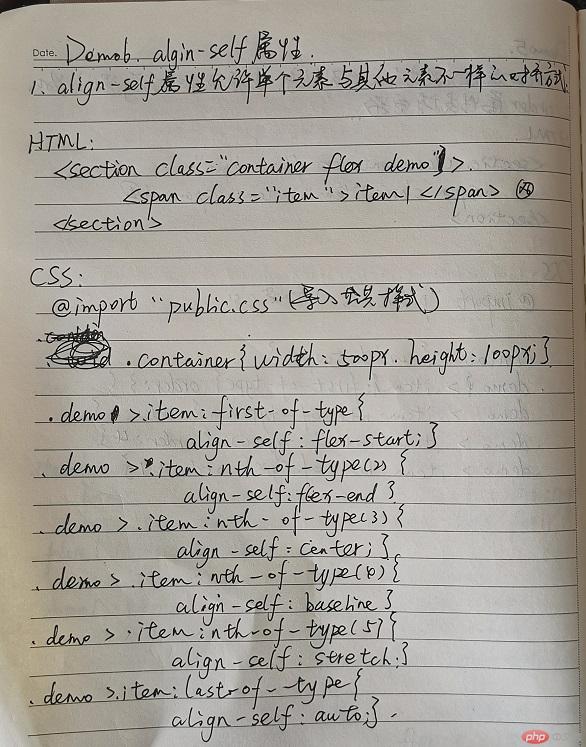 Date. Demo6. algin-self 属性.
1. align-self 属性允许单个元素与其他元素不一样的对齐方式.
HTML:
<section class="container flex demo">.
<span class="item">item1 </span> ⑥
<section>
CSS:
@import "public.css" (导入公共样式)
.container{ width: 500px. height: 100px; }
.demo >.item: first-of-type {
align-self: flex-start; }
. demo > .item: nth-of-type(2) {
align-self: flex-end }
. demo > .item: nth-of-type(3) {
align-self: center; }
. demo > .item: nth-of-type( ) {
align-self: baseline }
. demo > .item: nth-of-type(5) {
align-self: stretch; }
. demo >.item: last-of-type {
align-self: auto; } .
php